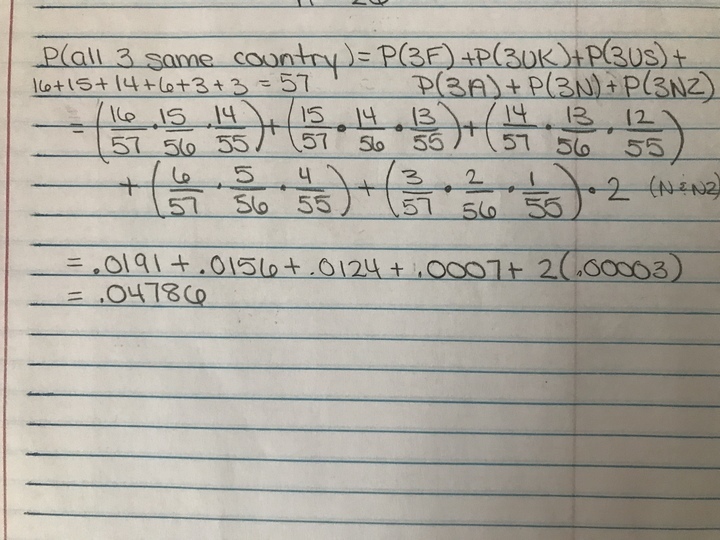 P(all 3 same country) = P(3F) + P(3UK) + P(3US) +
16+15+14+6+3+3 = 57 P(3A) + P(3N) + P(3NZ)
= (16/57 · 15/56 · 14/55) + (15/57 · 14/56 · 13/55) + (14/57 · 13/56 · 12/55)
+ (6/57 · 5/56 · 4/55) + (3/57 · 2/56 · 1/55) · 2 (N & NZ)
= .0191 + .0156 + .0124 + .0007 + 2(.00003)
= .04786